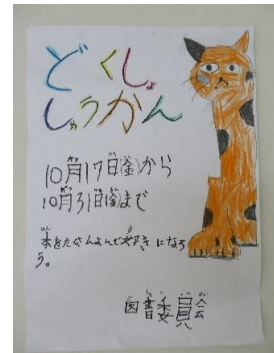 どくしょ
しゅうかん
10月17日(金)から
10月31日(金)まで
本をたくさんよんで好きになろ
う。
図書委員会